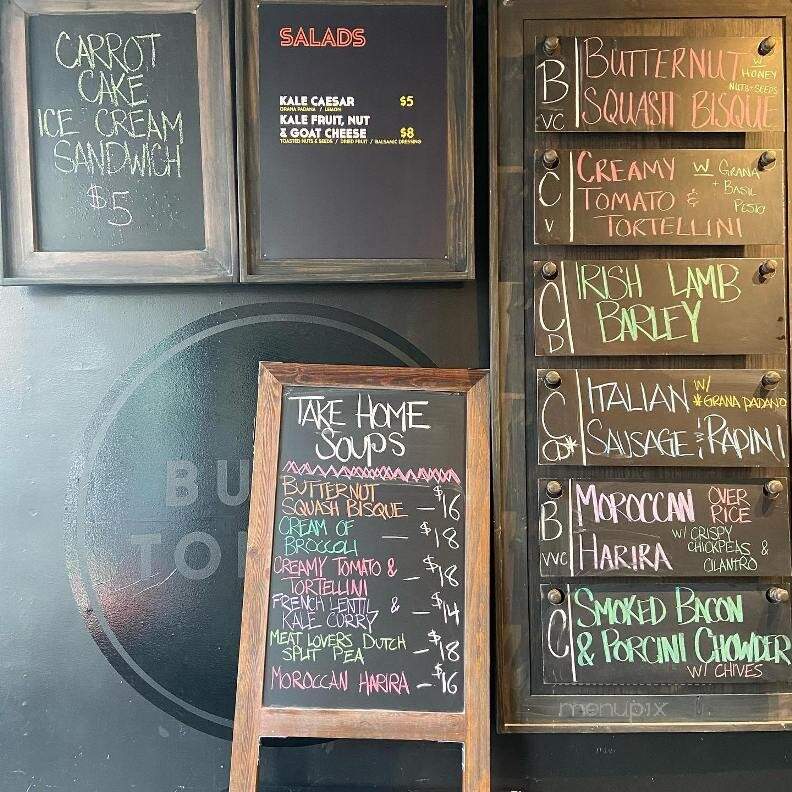 CARROT
CAKE
ICE CREAM
SANDWICH
$5
SALADS
KALE CAESAR $5
GRANA PADANA / LEMON
KALE FRUIT, NUT
& GOAT CHEESE $8
TOASTED NUTS & SEEDS / DRIED FRUIT / BALSAMIC DRESSING
TAKE HOME
SOUPS
BUTTERNUT
SQUASH BISQUE — $16
CREAM OF
BROCCOLI — $18
CREAMY TOMATO &
TORTELLINI — $18
FRENCH LENTIL &
KALE CURRY — $14
MEAT LOVERS DUTCH
SPLIT PEA — $18
MOROCCAN HARIRA — $16
B
VC
BUTTERNUT
SQUASH BISQUE
W
HONEY
NUTS+SEEDS
C
V
CREAMY
TOMATO &
TORTELLINI
W GRANA
+ BASIL
PESTO
C
D
IRISH LAMB
BARLEY
C
D*
ITALIAN
SAUSAGE & RAPINI
W/
*GRANA PADANO
B
VVC
MOROCCAN
HARIRA
OVER
RICE
W/ CRISPY
CHICKPEAS &
CILANTRO
C
SMOKED BACON
& PORCINI CHOWDER
W/ CHIVES
menupix